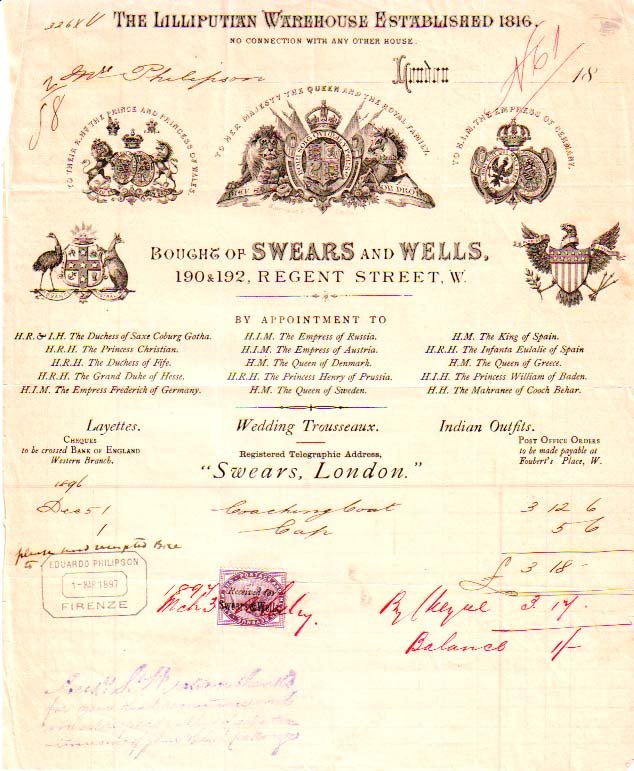 3268 V
THE LILLIPUTIAN WAREHOUSE ESTABLISHED 1816.
NO CONNECTION WITH ANY OTHER HOUSE.
Philipson
London 18
58
TO THEIR R.H.S THE PRINCE AND PRINCESS OF WALES.
TO HER MAJESTY THE QUEEN AND THE ROYAL FAMILY.
TO H.I.M. THE EMPRESS OF GERMANY.
BOUGHT OF SWEARS AND WELLS,
190 & 192, REGENT STREET, W.
BY APPOINTMENT TO
H.R. & I.H. The Duchess of Saxe Coburg Gotha.
H.R.H. The Princess Christian.
H.R.H. The Duchess of Fife.
H.R.H. The Grand Duke of Hesse.
H.I.M. The Empress Frederick of Germany.
H.I.M. The Empress of Russia.
H.I.M. The Empress of Austria.
H.M. The Queen of Denmark.
H.R.H. The Princess Henry of Prussia.
H.M. The Queen of Sweden.
H.M. The King of Spain.
H.R.H. The Infanta Eulalie of Spain
H.M. The Queen of Greece.
H.I.H. The Princess William of Baden.
H.H. The Mahranee of Cooch Behar.
Layettes.
Wedding Trousseaux.
Indian Outfits.
CHEQUES
to be crossed BANK OF ENGLAND
Western Branch.
Registered Telegraphic Address,
"Swears, London."
POST OFFICE ORDERS
to be made payable at
Foubert's Place, W.
1896
Dec 51 Coaching Coat 3 12 6
1 Cap 5 6
please send receipted
to
£ 3 18 -
EDUARDO PHILIPSON
1-MAR 1897
FIRENZE
Received for
Swears & Wells
1897
Mch 3 By Cheque 3. 17.
Balance 1/-